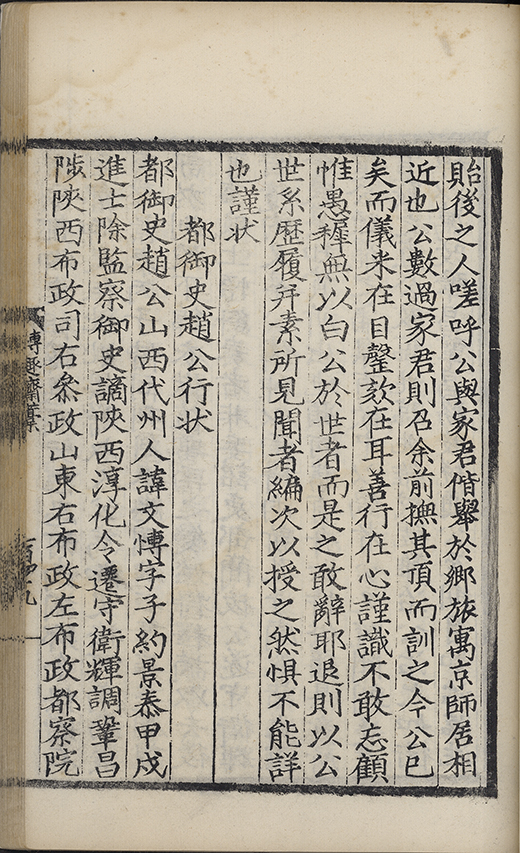 貽後之人嗟呼公與家君偕舉於鄉旅寓京師居相
近也公數過家君則召余前撫其頂而訓之今公已
矣而儀来在目謦欬在耳善行在心謹識不敢忘顧
惟愚穉無以白公於世者而是之敢辭耶退則以公
世系歷履并素所見聞者編次以授之然惧不能詳
也謹状
都御史趙公行状
都御史趙公山西代州人諱文愽字子約景泰甲戍
進士除監察御史謫陝西淳化令遷守衛輝調鞏昌
陟陝西布政司右叅政山東右布政左布政都察院
博趣齋藁